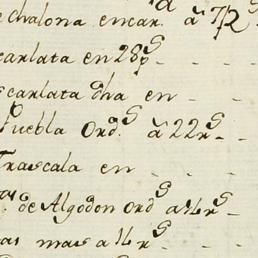 e chalona encar. à 7/2
carlata en 28 p.s
scarlata dha en
Puebla Ord.s à 22 r.s
Trascala en
as de Algodon Ord.s a 14 r.s
as mas a 14 r.s